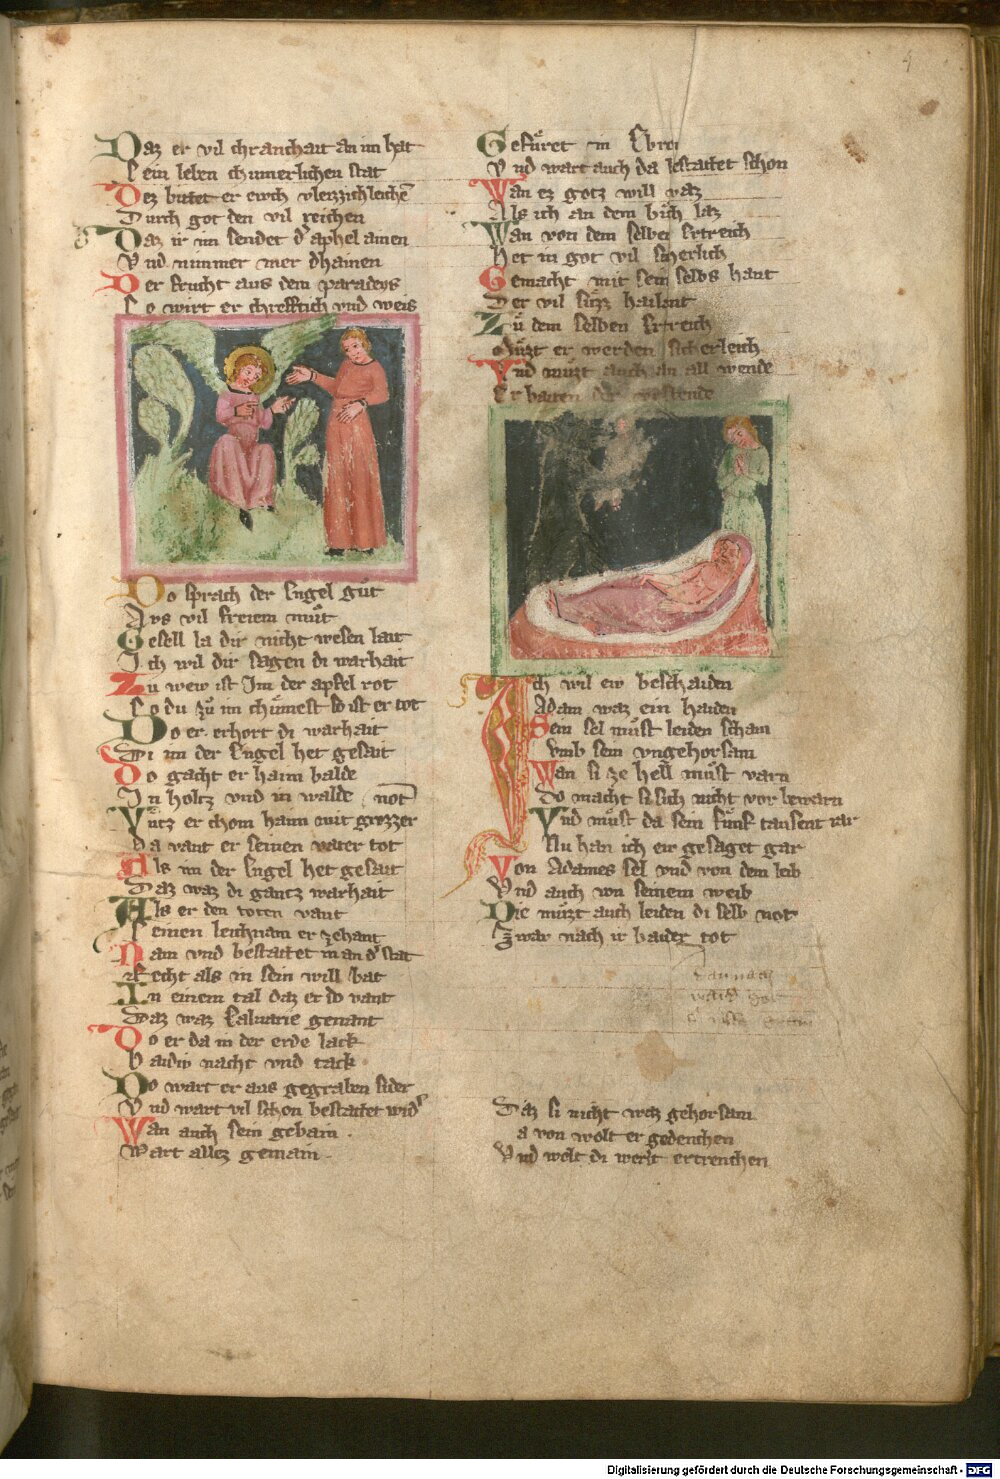 Daz er vil chranchait an im hat
Sein leben chumerlichen stat
Dez bittet er ewch vleizzichleichē
Durch got den vil reichen
Daz ir im sendet d' aphel ainen
Vnd nummer mer dhainen
Der frucht aus dem paradeys
So wirt er chrefftich vnd weis
Do sprach der Engel güt
Avs vil freiem müt
Gesell la dir nicht wesen lait
Ich wil dir sagen di warhait
Zu wew ist Im der apfel rot
So du zü im chümest so ist er tot
Do er erhort di warhait
Di im der Engel het gesait
Do gacht er haim balde
In holtz vnd in walde
Vntz er chom haim mit grozzer not
Da vant er seinen vater tot
Als im der Engel het gesait
Daz waz di gantz warhait
Als er den toten vant
Seinen leichnam er zehant
Nam vnd bestattet in an d' stat
Recht als in sein will bat
In einem tal daz er so vant
Daz waz Caluarie genant
Do er da in der erde lack
Paidiv nacht vnd tack
Do wart er aus gegraben sider
Vnd wart vil schon bestattet wid'
Wan auch sein gebain .
Wart allez gemain .
Gefüret in Ebron
Vnd wart auch da bestattet schon
Wan ez gotz will waz
Als ich an dem büch laz
Wan von dem selben Ertreich
Het in got vil sicherlich
Gemacht mit sein selbs hant
Der vil süzz hailant
Zü dem selben Ertreich
Müzt er werden sicherleich
Vnd müzt auch an all wende
Er baiten der
Ich wil ew beschaiden
Adam waz ein haiden
Sein sel müst leiden scham
Vmb sein vngehorsam
Wan si ze hell müst varn
Do macht si sich nicht vor bewarn
Vnd müst da sein fünf tausent iar
Nu han ich eir gesaget gar
Von Adames sel vnd von dem leib
Vnd auch von seinem weib
Die müzt auch leiden di selb not
Zwar nach ir baider tot
Daz si nicht waz gehorsam
a von wolt er gedenchen
Vnd wolt di werlt ertrenchen
Digitalisierung gefördert durch die Deutsche Forschungsgemeinschaft - DFG